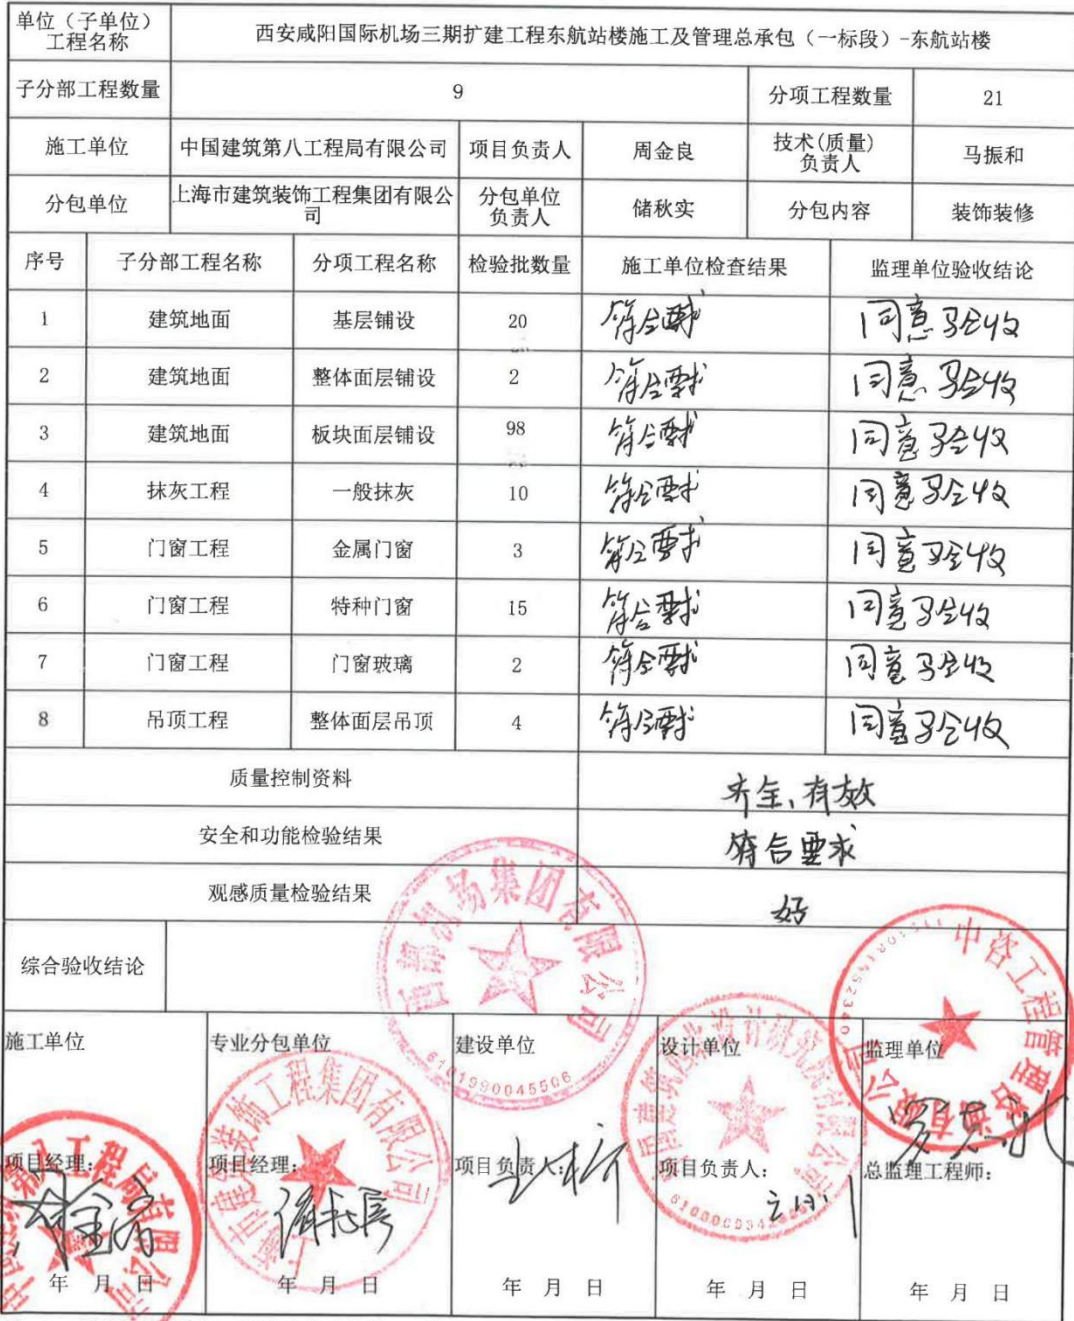 单位（子单位）
工程名称
西安咸阳国际机场三期扩建工程东航站楼施工及管理总承包（一标段）-东航站楼
子分部工程数量 9 分项工程数量 21
施工单位 中国建筑第八工程局有限公司 项目负责人 周金良 技术(质量)
负责人 马振和
分包单位 上海市建筑装饰工程集团有限公
司 分包单位
负责人 储秋实 分包内容 装饰装修
序号 子分部工程名称 分项工程名称 检验批数量 施工单位检查结果 监理单位验收结论
1 建筑地面 基层铺设 20 符合要求 同意验收
2 建筑地面 整体面层铺设 2 符合要求 同意验收
3 建筑地面 板块面层铺设 98 符合要求 同意验收
4 抹灰工程 一般抹灰 10 符合要求 同意验收
5 门窗工程 金属门窗 3 符合要求 同意验收
6 门窗工程 特种门窗 15 符合要求 同意验收
7 门窗工程 门窗玻璃 2 符合要求 同意验收
8 吊顶工程 整体面层吊顶 4 符合要求 同意验收
质量控制资料 齐全、有效
安全和功能检验结果 符合要求
观感质量检验结果 好
综合验收结论
施工单位 专业分包单位 建设单位 设计单位 监理单位
项目经理： 项目经理： 项目负责人： 项目负责人： 总监理工程师：
年 月 日 年 月 日 年 月 日 年 月 日 年 月 日
西部机场集团有限公司
6101990045506
上海市建筑装饰工程集团有限公司